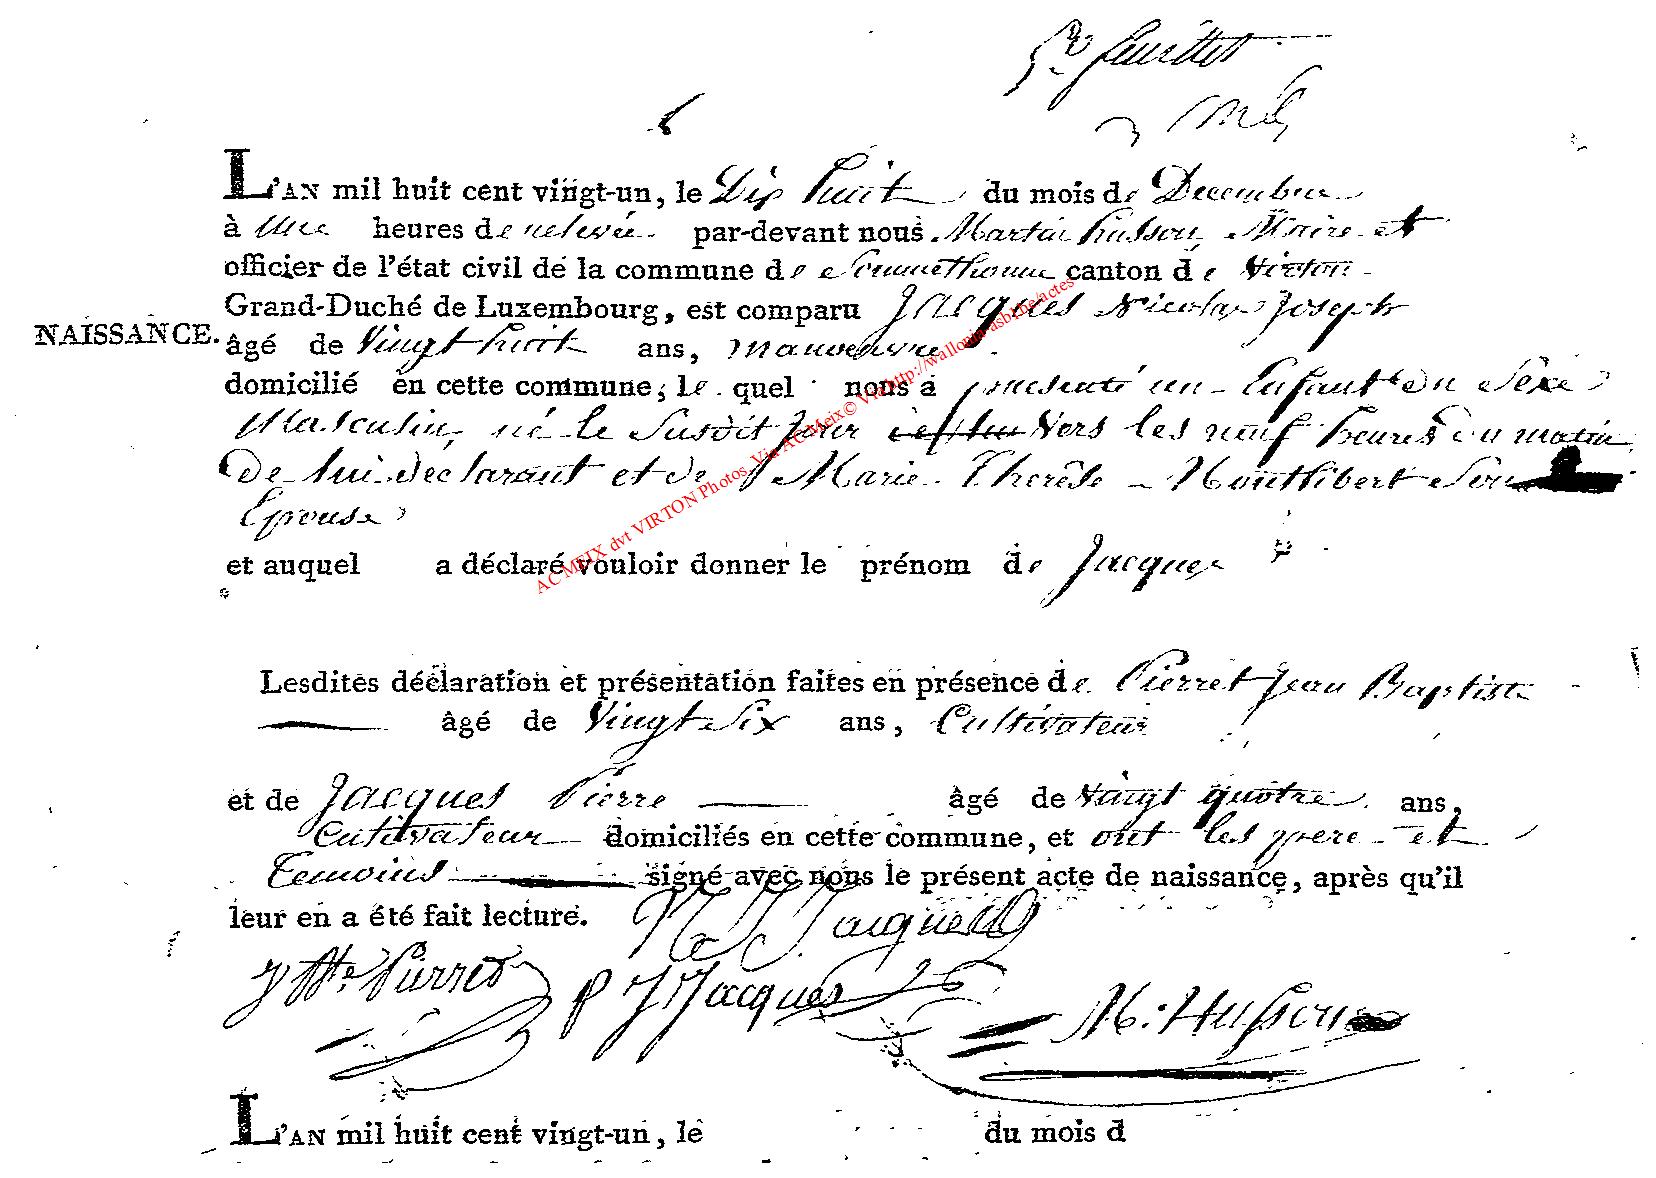 5e feuillet
L'AN mil huit cent vingt-un, le Dix huit du mois de Decembre
à une heures de relevée par-devant nous Martin husson, Maire et
officier de l'état civil de la commune de Sommethonne canton de Virton
Grand-Duché de Luxembourg, est comparu Jacques Nicolas Joseph
NAISSANCE.
âgé de Vingt huit ans, manoeuvre
domicilié en cette commune; le quel nous a presenté un Enfant du Séxe
Masculin, né le Susdit jour vers les neuf heures du matin
De lui declarant et de Marie Therèse Montlibert Son
Epouse
et auquel a déclaré vouloir donner le prénom de Jacques
Lesdites déclaration et présentation faites en présence de Pierret Jean Baptiste
âgé de Vingt Six ans, Cultivateur
et de Jacques Pierre âgé de Vingt quatre ans,
Cultivateur domiciliés en cette commune, et ont les pere et
Temoins signé avec nous le présent acte de naissance, après qu'il
leur en a été fait lecture. N J Jacques
J Bte Pierret P J Jacques
M. Husson
L'AN mil huit cent vingt-un, le du mois d
AC MEIX dvt VIRTON Photos, Via AC Meix© Via http://wallonia-asbl.be/actes